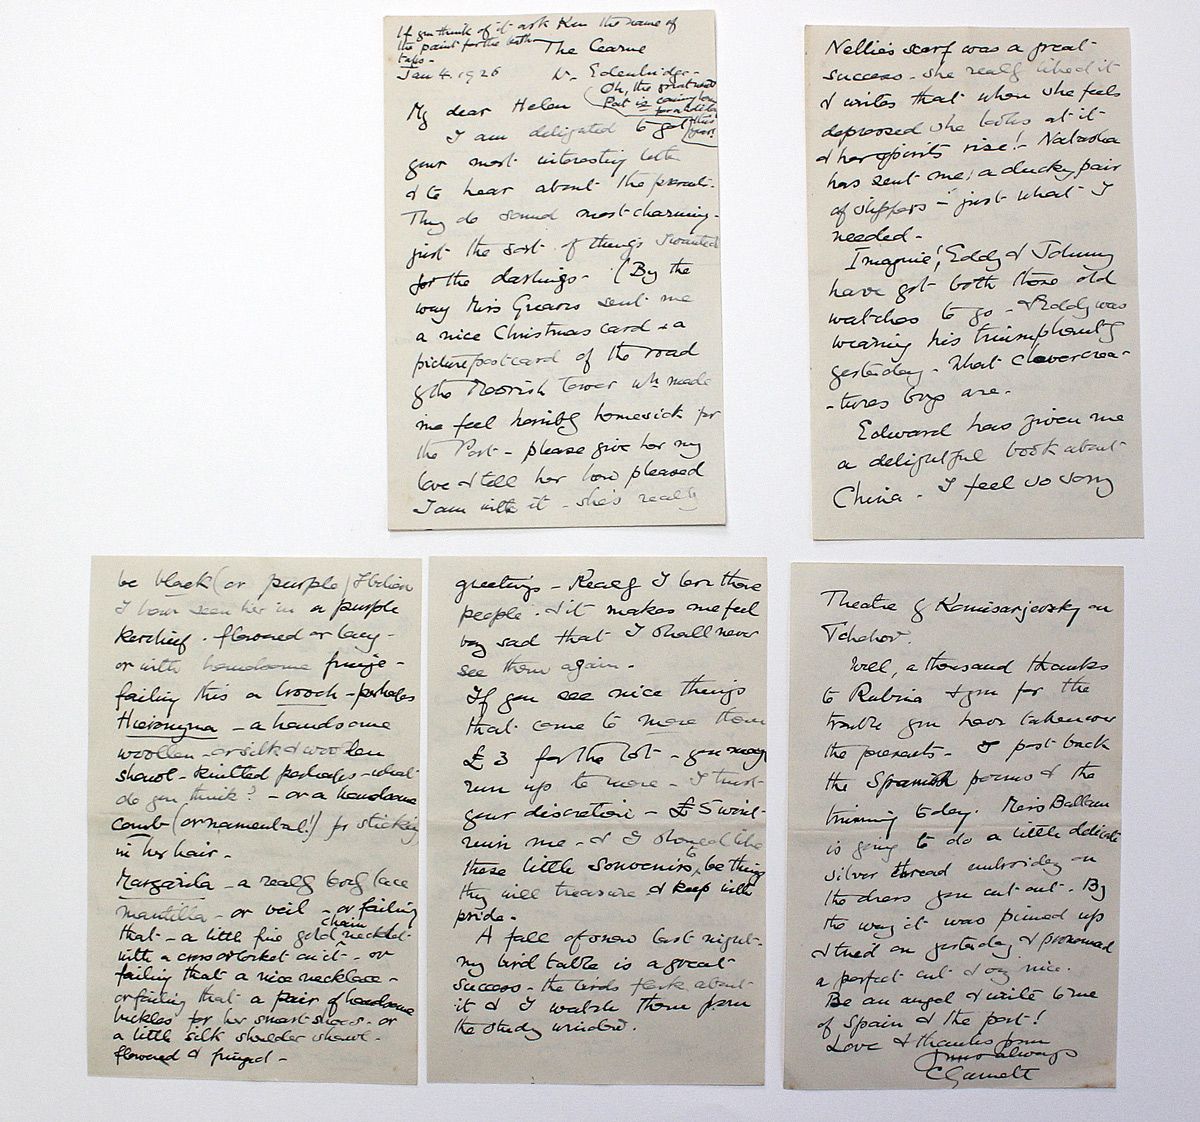 If you think of it ask Ken the name of
the paint for the bath
taps -
The Cearne
Jan 4. 1926 Nr Edenbridge -
(Oh, the great wood
Post is coming
My dear Helen
I am delighted to get
your most interesting letter
& to hear about the
They do sound most charming -
just the sort of things I wanted
for the darlings - (By the
way Miss Graves sent me
a nice Christmas card & a
picture postcard of the road
& the Moorish Tower wh made
me feel horribly homesick for
the Port - please give her my
love & tell her how pleased
I am with it - she's really
Nellie's scarf was a great
success - she really liked it
& writes that when she feels
depressed she looks at it
& her spirits rise! Natasha
has sent me a ducky pair
of slippers - just what I
needed -
Imagine! Eddy & Johnny
have got both those old
watches to go - & Eddy was
wearing his triumphantly
yesterday - What clever crea-
-tures boys are -
Edward has given me
a delightful book about
China - I feel so sorry
be black (or purple) I believe
I have seen her in a purple
kerchief - flowered or lacy -
or with handsome fringe -
failing this a brooch - perhaps
Hieronyma - a handsome
woollen - or silk & woollen
shawl - knitted perhaps - what
do you think? - or a handsome
comb (ornamental!) for sticking
in her hair -
Margarita - a really lovely lace
mantilla - or veil - or failing
that - a little fine gold chain necklet
with a cross or locket on it - or
failing that a nice necklace -
or failing that a pair of handsome
buckles for her smart shoes - or
a little silk shoulder shawl -
flowered & fringed -
greetings - Really I love those
people - & it makes me feel
very sad that I shall never
see them again -
If you see nice things
that come to more than
£3 for the lot - you may
run up to more - I trust
your discretion - £5 won't
ruin me - & I should like
these little souvenirs to be things
they will treasure & keep with
pride -
A fall of snow last night -
my bird table is a great
success - the birds flock about
it & I watch them from
the study window.
Theatre & Komisarjevsky on
Tchehov.
Well, a thousand thanks
to Rubina & you for the
trouble you have taken over
the presents - I post back
the Spanish poems & the
trimming today. Miss Ballam
is going to do a little delicate
silver thread embroidery on
the dress you cut out. By
the way it was pinned up
& tried on yesterday & pronounced
a perfect cut & very nice.
Be an angel & write to me
of Spain & the port!
Love & thanks from
yours always
C Garnett